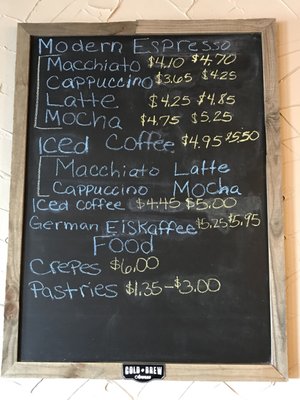 Modern Espresso
Macchiato $4.10 $4.70
Cappuccino $3.65 $4.25
Latte $4.25 $4.85
Mocha $4.75 $5.25
Iced Coffee $4.95 $5.50
Macchiato Latte
Cappuccino Mocha
Iced Coffee $4.45 $5.00
German Eiskaffee $5.25 $5.95
Food
Crepes $6.00
Pastries $1.35-$3.00
COLD BREW